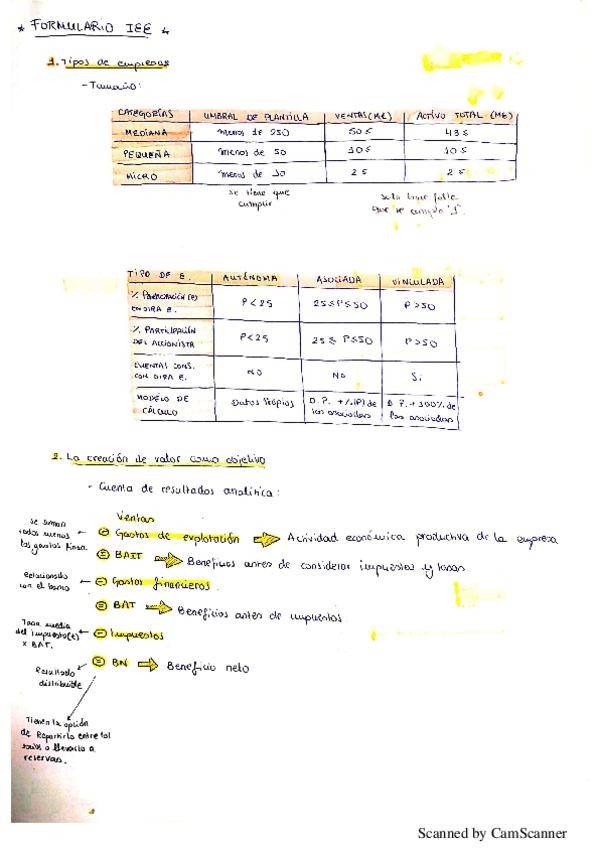 * FORMULARIO IEE *
1. Tipos de empresas
- Tamaño:
CATEGORÍAS UMBRAL DE PLANTILLA VENTAS (M€) ACTIVO TOTAL (M€)
MEDIANA menos de 250 50 ≤ 43 ≤
PEQUEÑA menos de 50 10 ≤ 10 ≤
MICRO menos de 10 2 ≤ 2 ≤
se tiene que cumplir
solo hace falta que se cumpla "1".
TIPO DE E. AUTÓNOMA ASOCIADA VINCULADA
% PARTICIPACIÓN (P) EN OTRA E. P < 25 25 ≤ P ≤ 50 P > 50
% PARTICIPACIÓN DEL ACCIONISTA P < 25 25 ≤ P ≤ 50 P > 50
CUENTAS CONS. CON OTRA E. NO NO Sí
MODELO DE CÁLCULO Datos Propios D.P. + % (P) de las asociadas D.P. + 100% de las asociadas
2. La creación de valor como objetivo
- Cuenta de resultados analítica:
Ventas
se suman todos menos los gastos finan. ← ⊖ Gastos de explotación ⇒ Actividad económica productiva de la empresa
⊜ BAIT ⇒ Beneficios antes de considerar impuestos y tasas
Relacionado con el banco ← ⊖ Gastos financieros.
⊜ BAT ⇒ Beneficios antes de impuestos
Tasa media del impuesto (t) x BAT. ← ⊖ Impuestos
Resultado distribuible ← ⊜ BN ⇒ Beneficio neto
Tienen la opción
de Repartirlo entre los
socios o llevarlo a
reservas.
Scanned by CamScanner